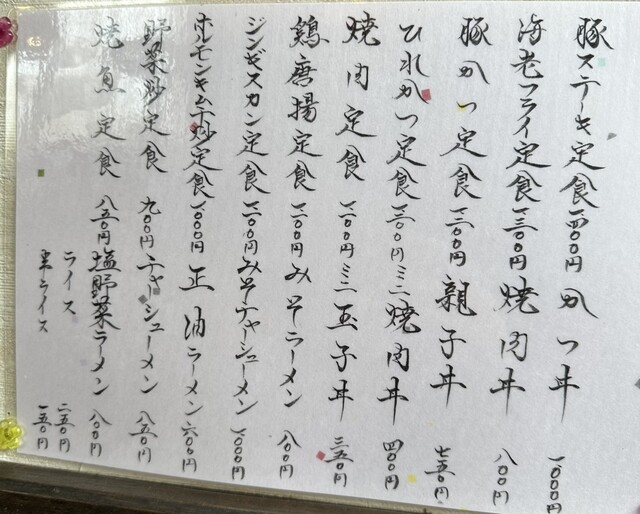 豚ステーキ定食 一四〇〇円 かつ丼 一〇〇〇円
海老フライ定食 一三〇〇円 焼肉丼 八〇〇円
豚かつ定食 一二〇〇円 親子丼 七五〇円
ひれかつ定食 一三〇〇円 ミニ焼肉丼 四〇〇円
焼肉定食 一二〇〇円 ミニ玉子丼 三五〇円
鶏唐揚定食 一二〇〇円 みそラーメン 八〇〇円
ジンギスカン定食 一二〇〇円 みそチャーシューメン 一〇〇〇円
ホルモンキムチ炒定食 一〇〇〇円 正油ラーメン 六〇〇円
野菜炒定食 九〇〇円 チャーシューメン 八五〇円
焼魚定食 八五〇円 塩野菜ラーメン 八〇〇円
ライス 二五〇円
半ライス 一五〇円